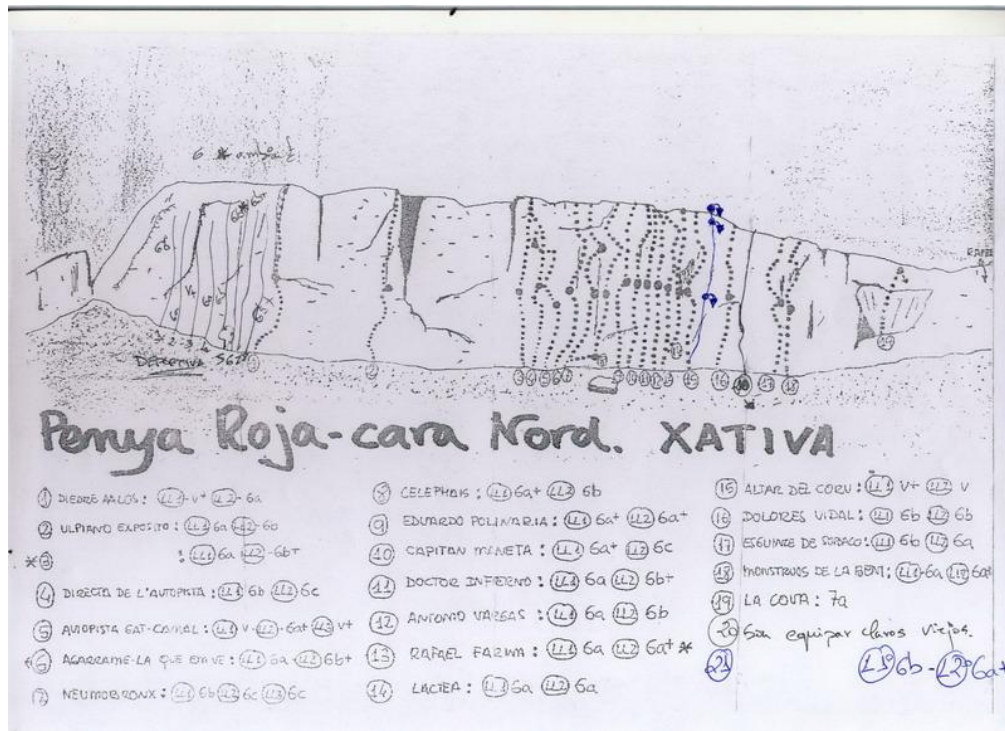 Penya Roja-cara Nord. XATIVA
① DIEDRE AALOS: (LL1)-V+ (LL2)-6a
② ULPIANO EXPOSITO: (LL1) 6a (LL2)-6b
*③ : (LL1) 6a (LL2)-6b+
④ DIRECTA DE L'AUTOPISTA: (LL1) 6b (LL2) 6c
⑤ AUTOPISTA GAT-CAMAL: (LL1) V-(LL2)-6a+ (LL3) V+
⑥ AGARRAME-LA QUE EM VE: (LL1) 6a-(LL2) 6b+
⑦ NEUMOBRONX: (LL1) 6b (LL2) 6c (LL3) 6c
⑧ CELEPHAIS: (LL1) 6a+ (LL2) 6b
⑨ EDUARDO POLINARIA: (LL1) 6a+ (LL2) 6a+
⑩ CAPITAN MANETA: (LL1) 6a+ (LL2) 6c
⑪ DOCTOR INFIERNO: (LL1) 6a (LL2) 6b+
⑫ ANTONIO VARGAS: (LL1) 6a (LL2) 6b
⑬ RAFAEL FARINA: (LL1) 6a (LL2) 6a+ *
⑭ LACTEA: (LL1) 6a (LL2) 6a
⑮ ALTAR DEL CORV: (LL1) V+ (LL2) V
⑯ DOLORES VIDAL: (LL1) 6b (LL2) 6b
⑰ ESGUINZE DE SOBACO: (LL1) 6b (LL2) 6a
⑱ MONSTRUOS DE LA BENI: (LL1)-6a (LL2) 6a+
⑲ LA COVA: 7a
⑳ Sin equipar clavos viejos.
㉑ (L1º) 6b-(L2º) 6a+